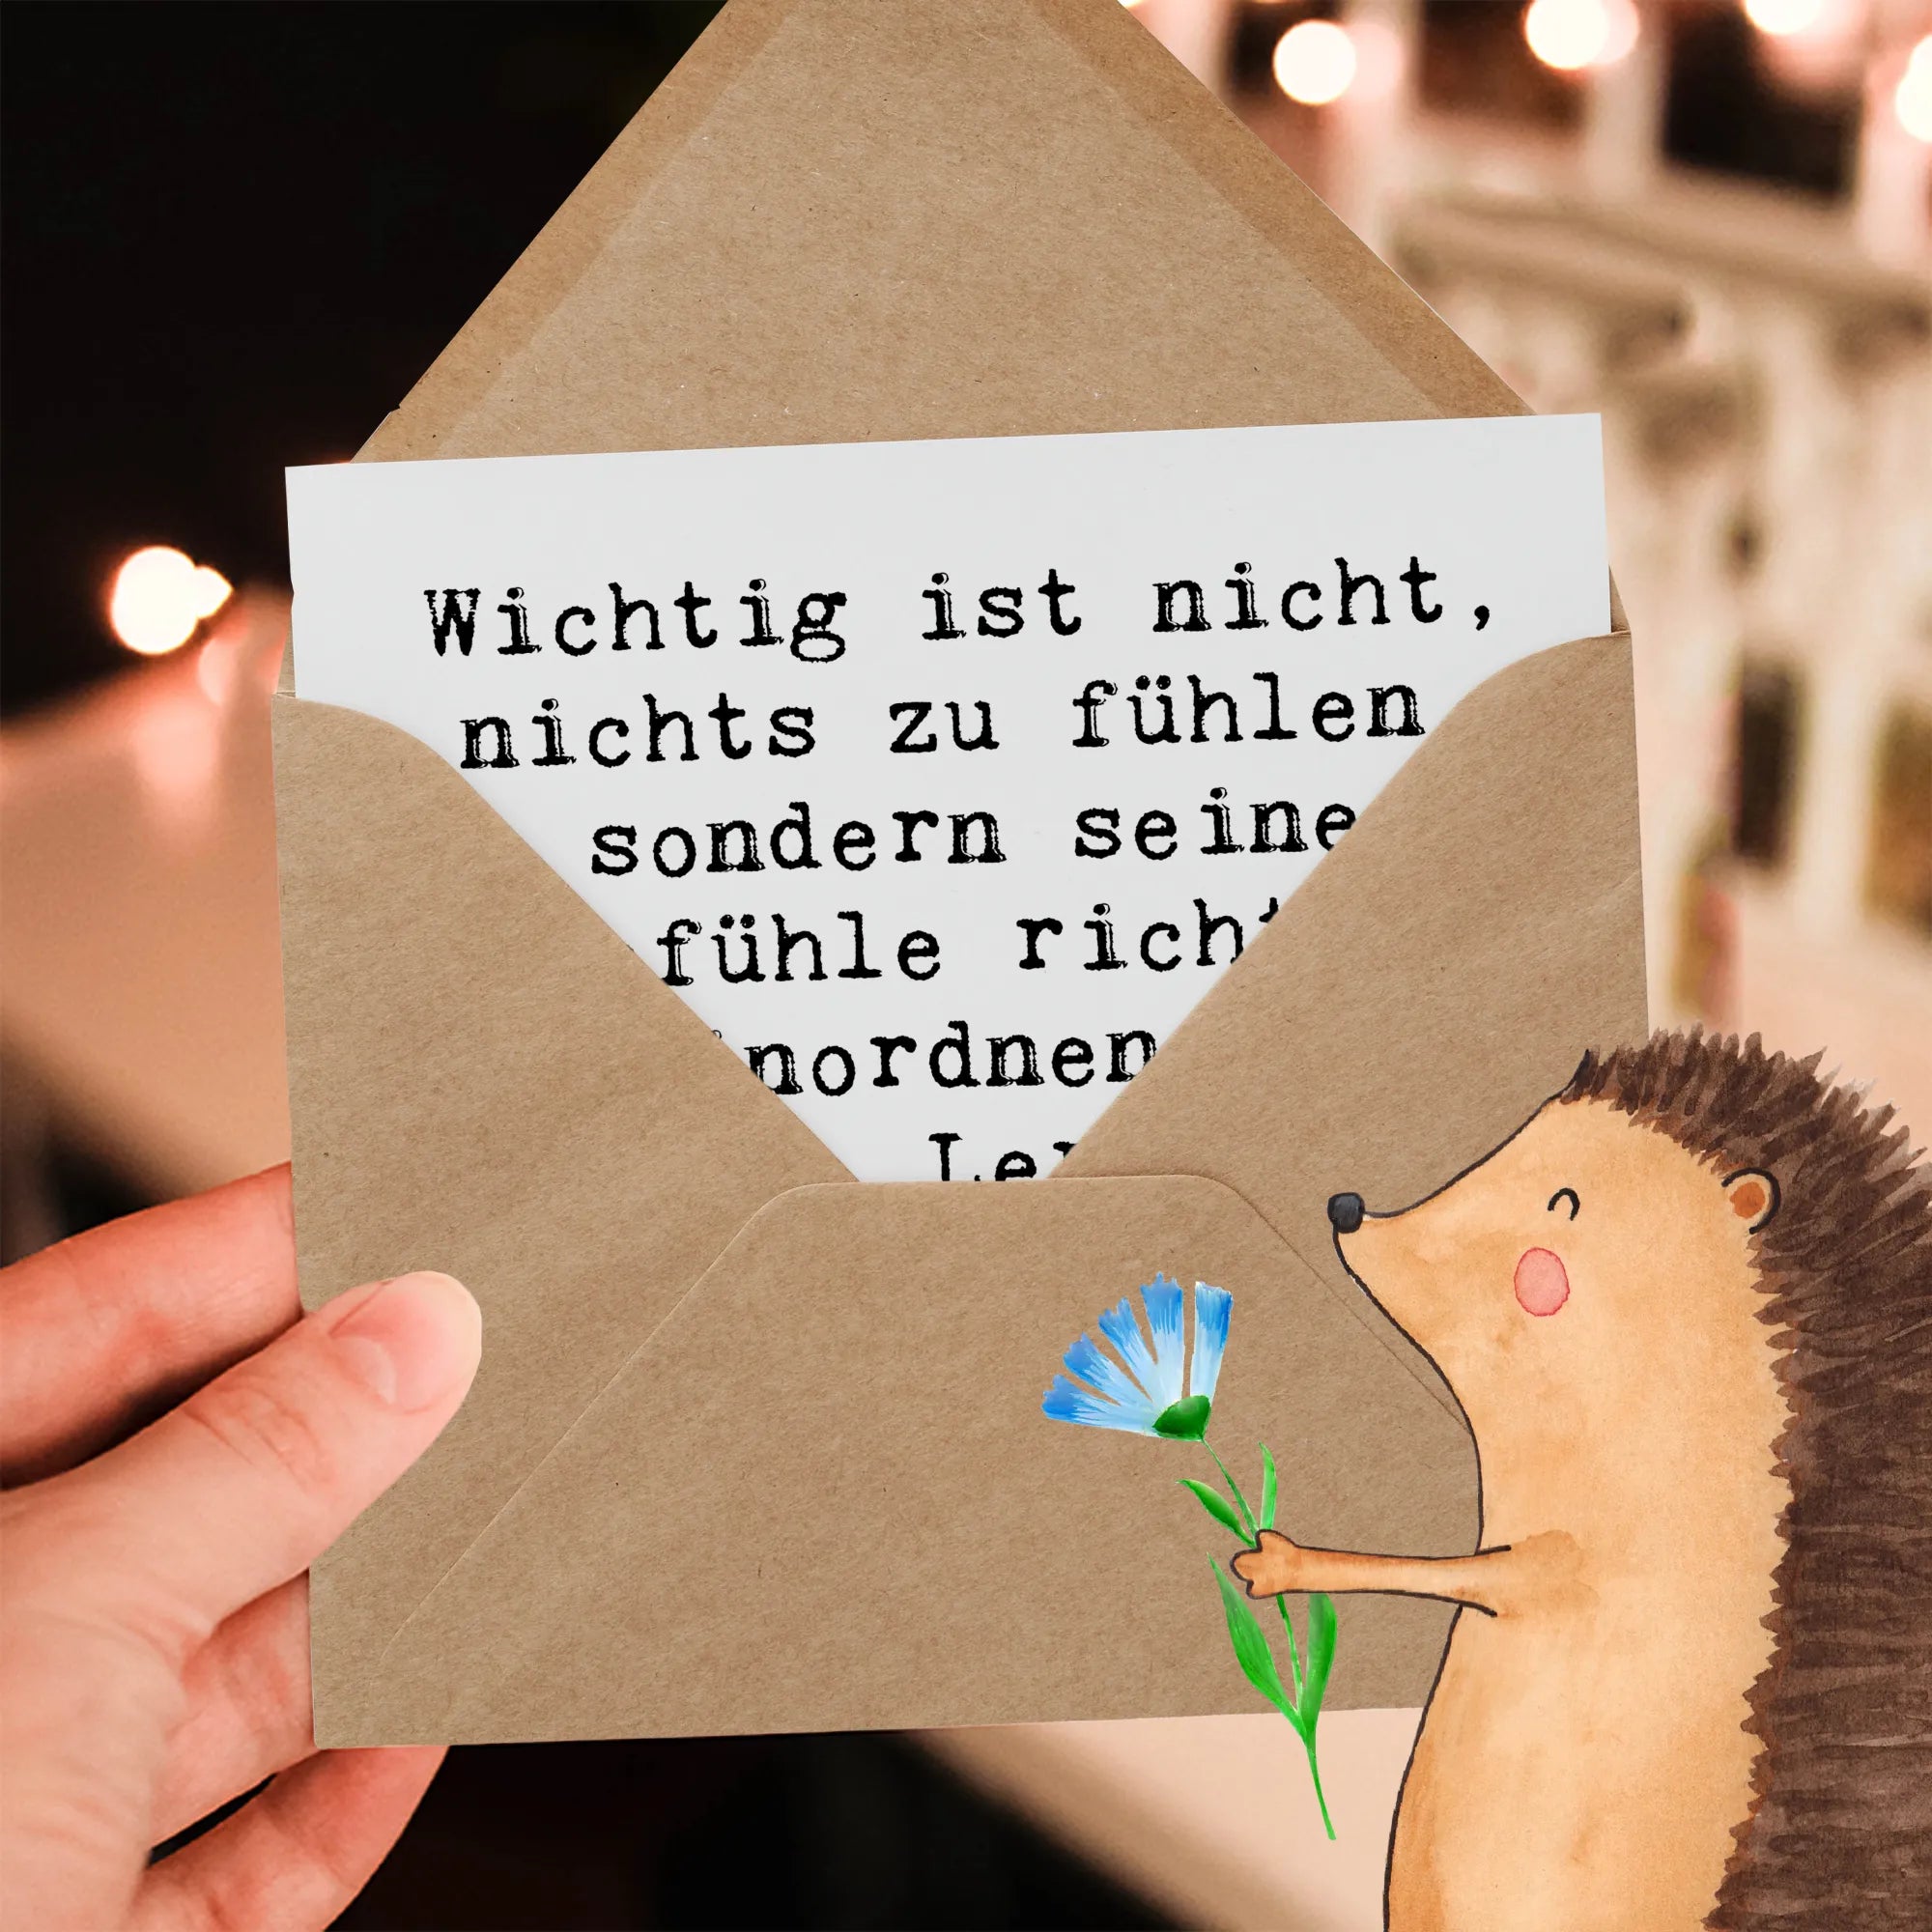 Wichtig ist nicht,
nichts zu fühlen
sondern seine
fühle
nordnen